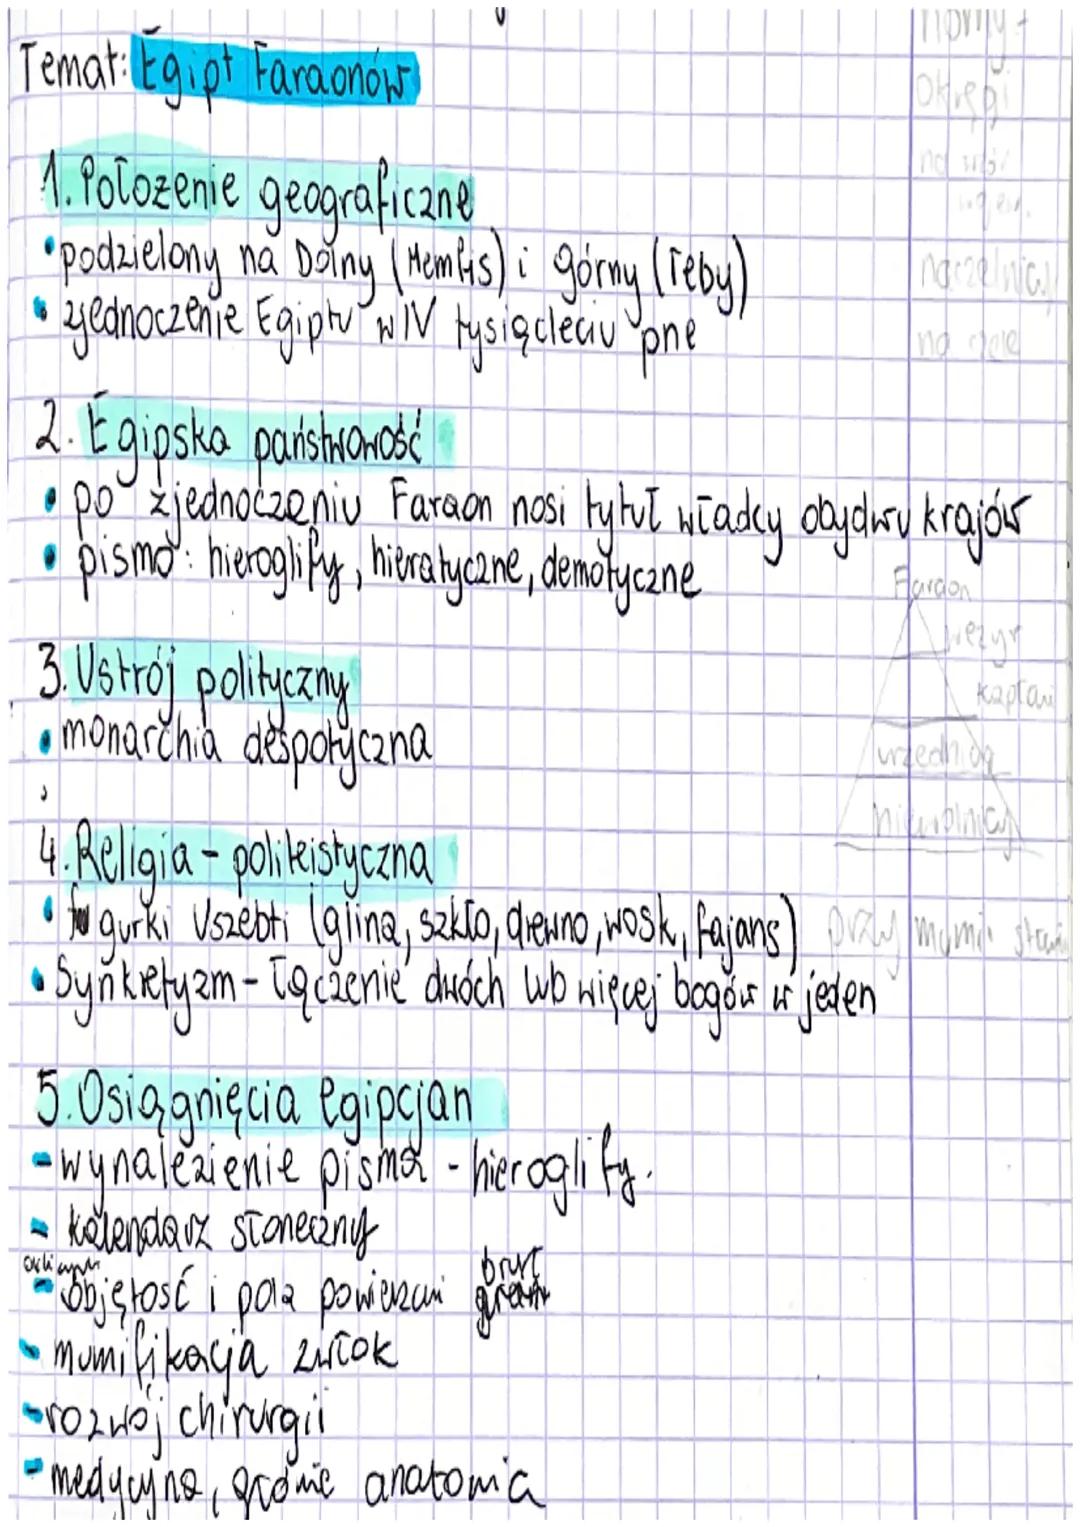 Temat: Egipt Faraonów
nomy -
okręgi
naczelnicy
na czele
1. Położenie geograficzne
• podzielony na Dolny (Memfis) i górny (Teby)
• zjednoczenie Egiptu w IV tysiącleciu pne
2. Egipska państwowość
• po zjednoczeniu Faraon nosi tytuł władcy obydwu krajów
• pismo: hieroglify, hieratyczne, demotyczne
Faraon
wezyr
kapłani
urzędnicy
niewolnicy
3. Ustrój polityczny
• monarchia despotyczna
4. Religia - politeistyczna
• figurki Uszebti (glina, szkło, drewno, wosk, fajans) przy mumii
• Synkretyzm - łączenie dwóch lub więcej bogów w jeden
5. Osiągnięcia egipcjan
- wynalezienie pisma - hieroglify.
- kalendarz słoneczny
- objętość i pola powierzchni brył
- mumifikacja zwłok
- rozwój chirurgii
- medycyna, głównie anatomia